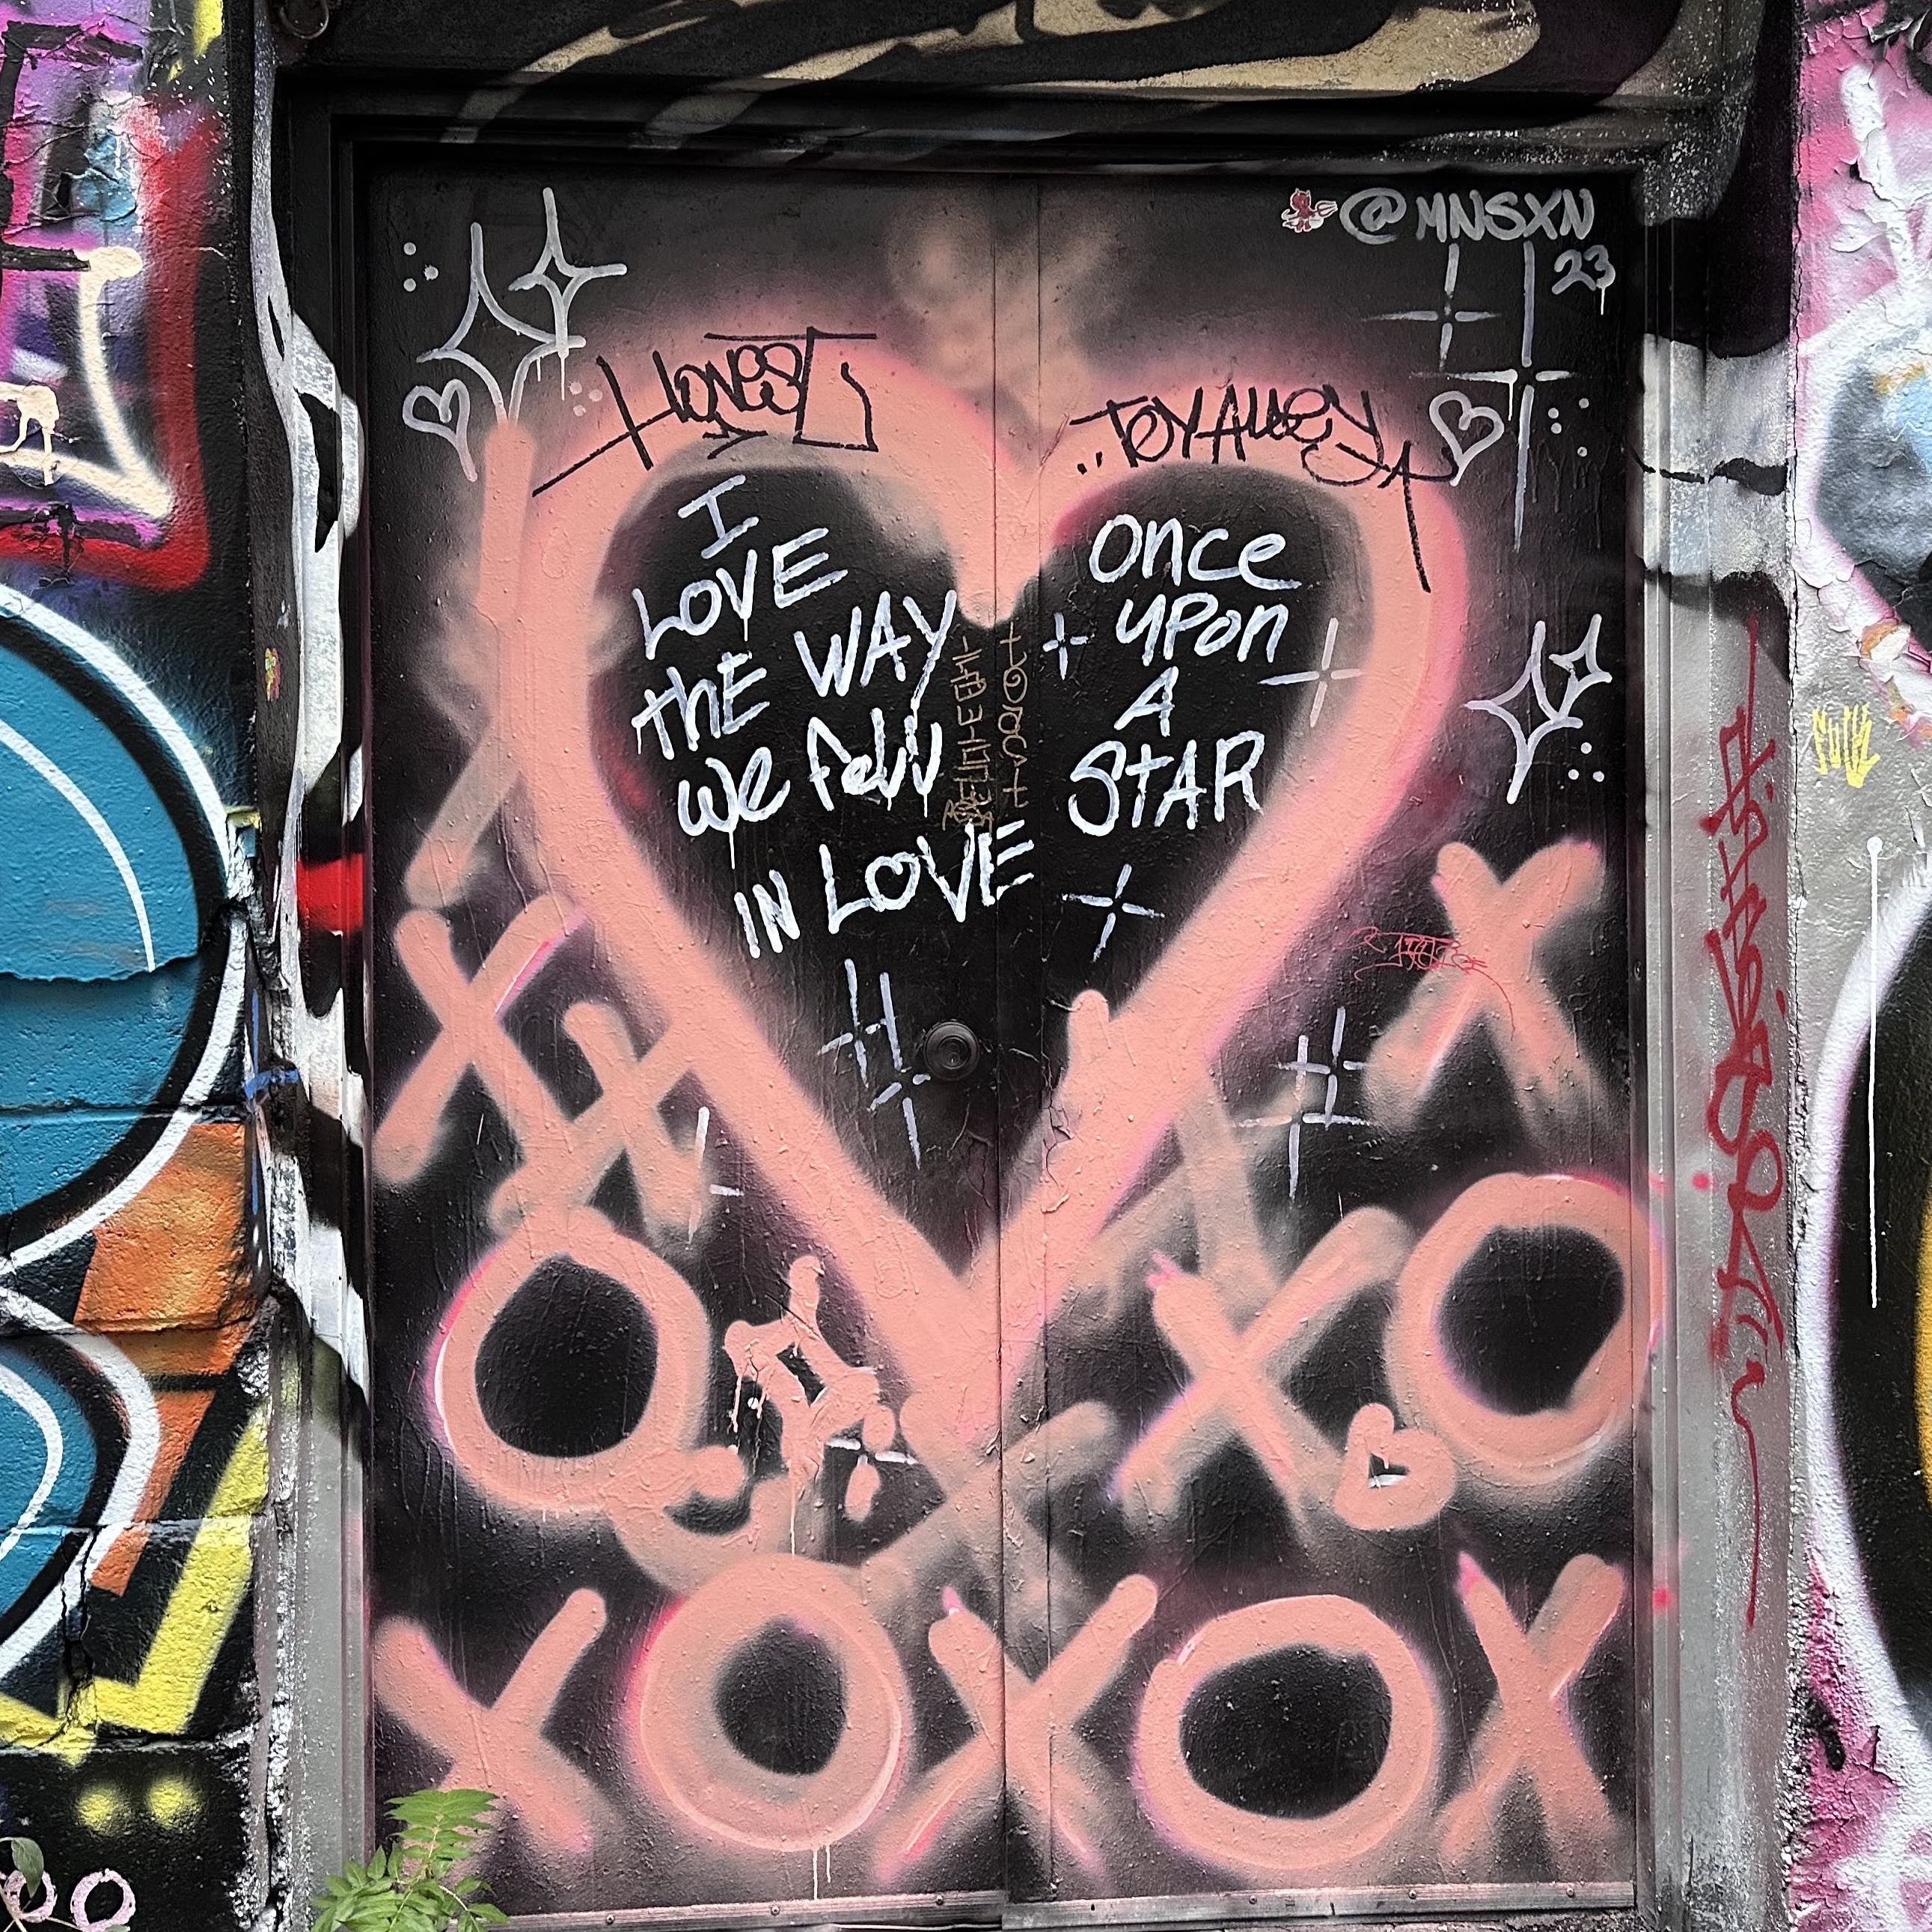 @MNSXN
23
HONEST
TOYALLEY
I
LOVE
thE WAY
we fell
IN LOVE
Once
upon
A
STAR
X
X
X
O
X
O
X
O
X
O
X